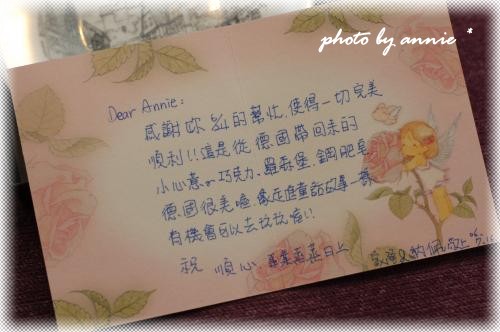 photo by annie *
Dear Annie:
感謝妳的幫忙,使得一切完美
順利!!這是從德國帶回來的
小心意。巧克力、羅森堡、鋼肥皂
德國很美喔,像走進童話故事一樣
有機會可以去玩玩唷!!
祝 順心 事業蒸蒸日上